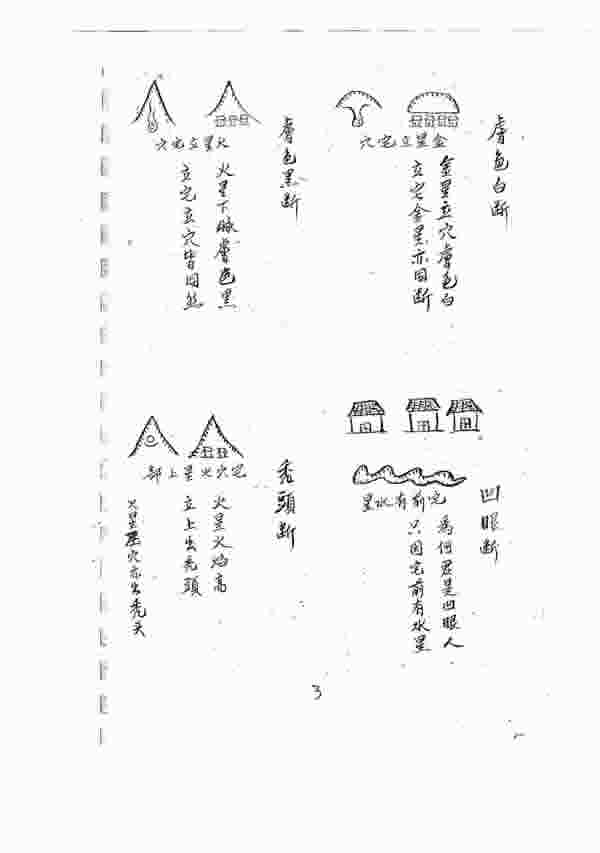 膚色白斷
金星立宅穴
金星立穴膚色白
立宅金星亦同斷
膚色黑斷
火星立宅穴
火星下脉膚色黑
立宅立穴皆同然
凹眼斷
宅前有水星
為何君是凹眼人
只因宅前有水星
禿頭斷
宅穴火星上部
火星火焰高
立上出禿頭
火星星穴亦出禿头
3